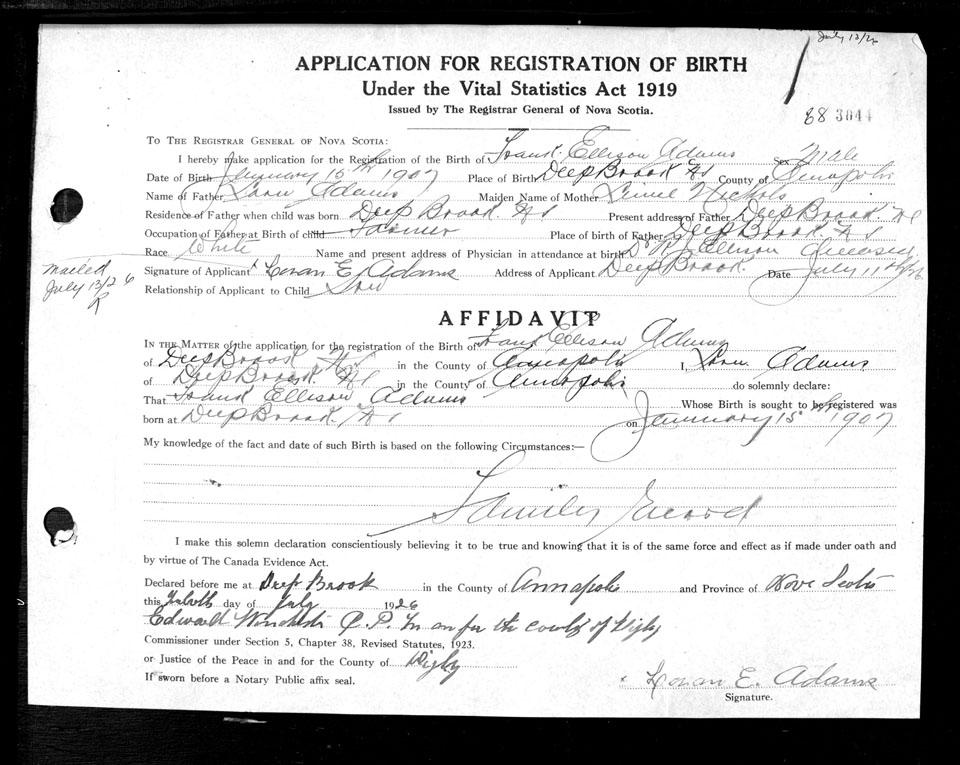 July 13/26
APPLICATION FOR REGISTRATION OF BIRTH
Under the Vital Statistics Act 1919
Issued by The Registrar General of Nova Scotia.
68 3044
TO THE REGISTRAR GENERAL OF NOVA SCOTIA:
I hereby make application for the Registration of the Birth of Frank Ellison Adams Sex Male
Date of Birth January 15th 1907 Place of Birth Deep Brook NS County of Annapolis
Name of Father Adams Maiden Name of Mother Nichols
Residence of Father when child was born Deep Brook. NS Present address of Father Deep Brook. NS
Occupation of Father at Birth of child Farmer Place of birth of Father Deep Brook. NS
Race White Name and present address of Physician in attendance at birth Dr Ellison
mailed
July 13/26
R
Signature of Applicant x Loran E. Adams Address of Applicant Deep Brook. Date July 11th
Relationship of Applicant to Child Son
AFFIDAVIT
IN THE MATTER of the application for the registration of the Birth of Frank Ellison Adams
of Deep Brook NS in the County of Annapolis I, Adams
of Deep Brook. NS in the County of Annapolis do solemnly declare:
That Frank Ellison Adams Whose Birth is sought to be registered was
born at Deep Brook. NS on January 15th 1907
My knowledge of the fact and date of such Birth is based on the following Circumstances:—
Family Record
I make this solemn declaration conscientiously believing it to be true and knowing that it is of the same force and effect as if made under oath and
by virtue of The Canada Evidence Act.
Declared before me at Deep Brook in the County of Annapolis and Province of Nova Scotia
this day of July 1926
Edward J.P. In an for the county of Digby
Commissioner under Section 5, Chapter 38, Revised Statutes, 1923.
or Justice of the Peace in and for the County of Digby
If sworn before a Notary Public affix seal.
x Loran E. Adams
Signature.